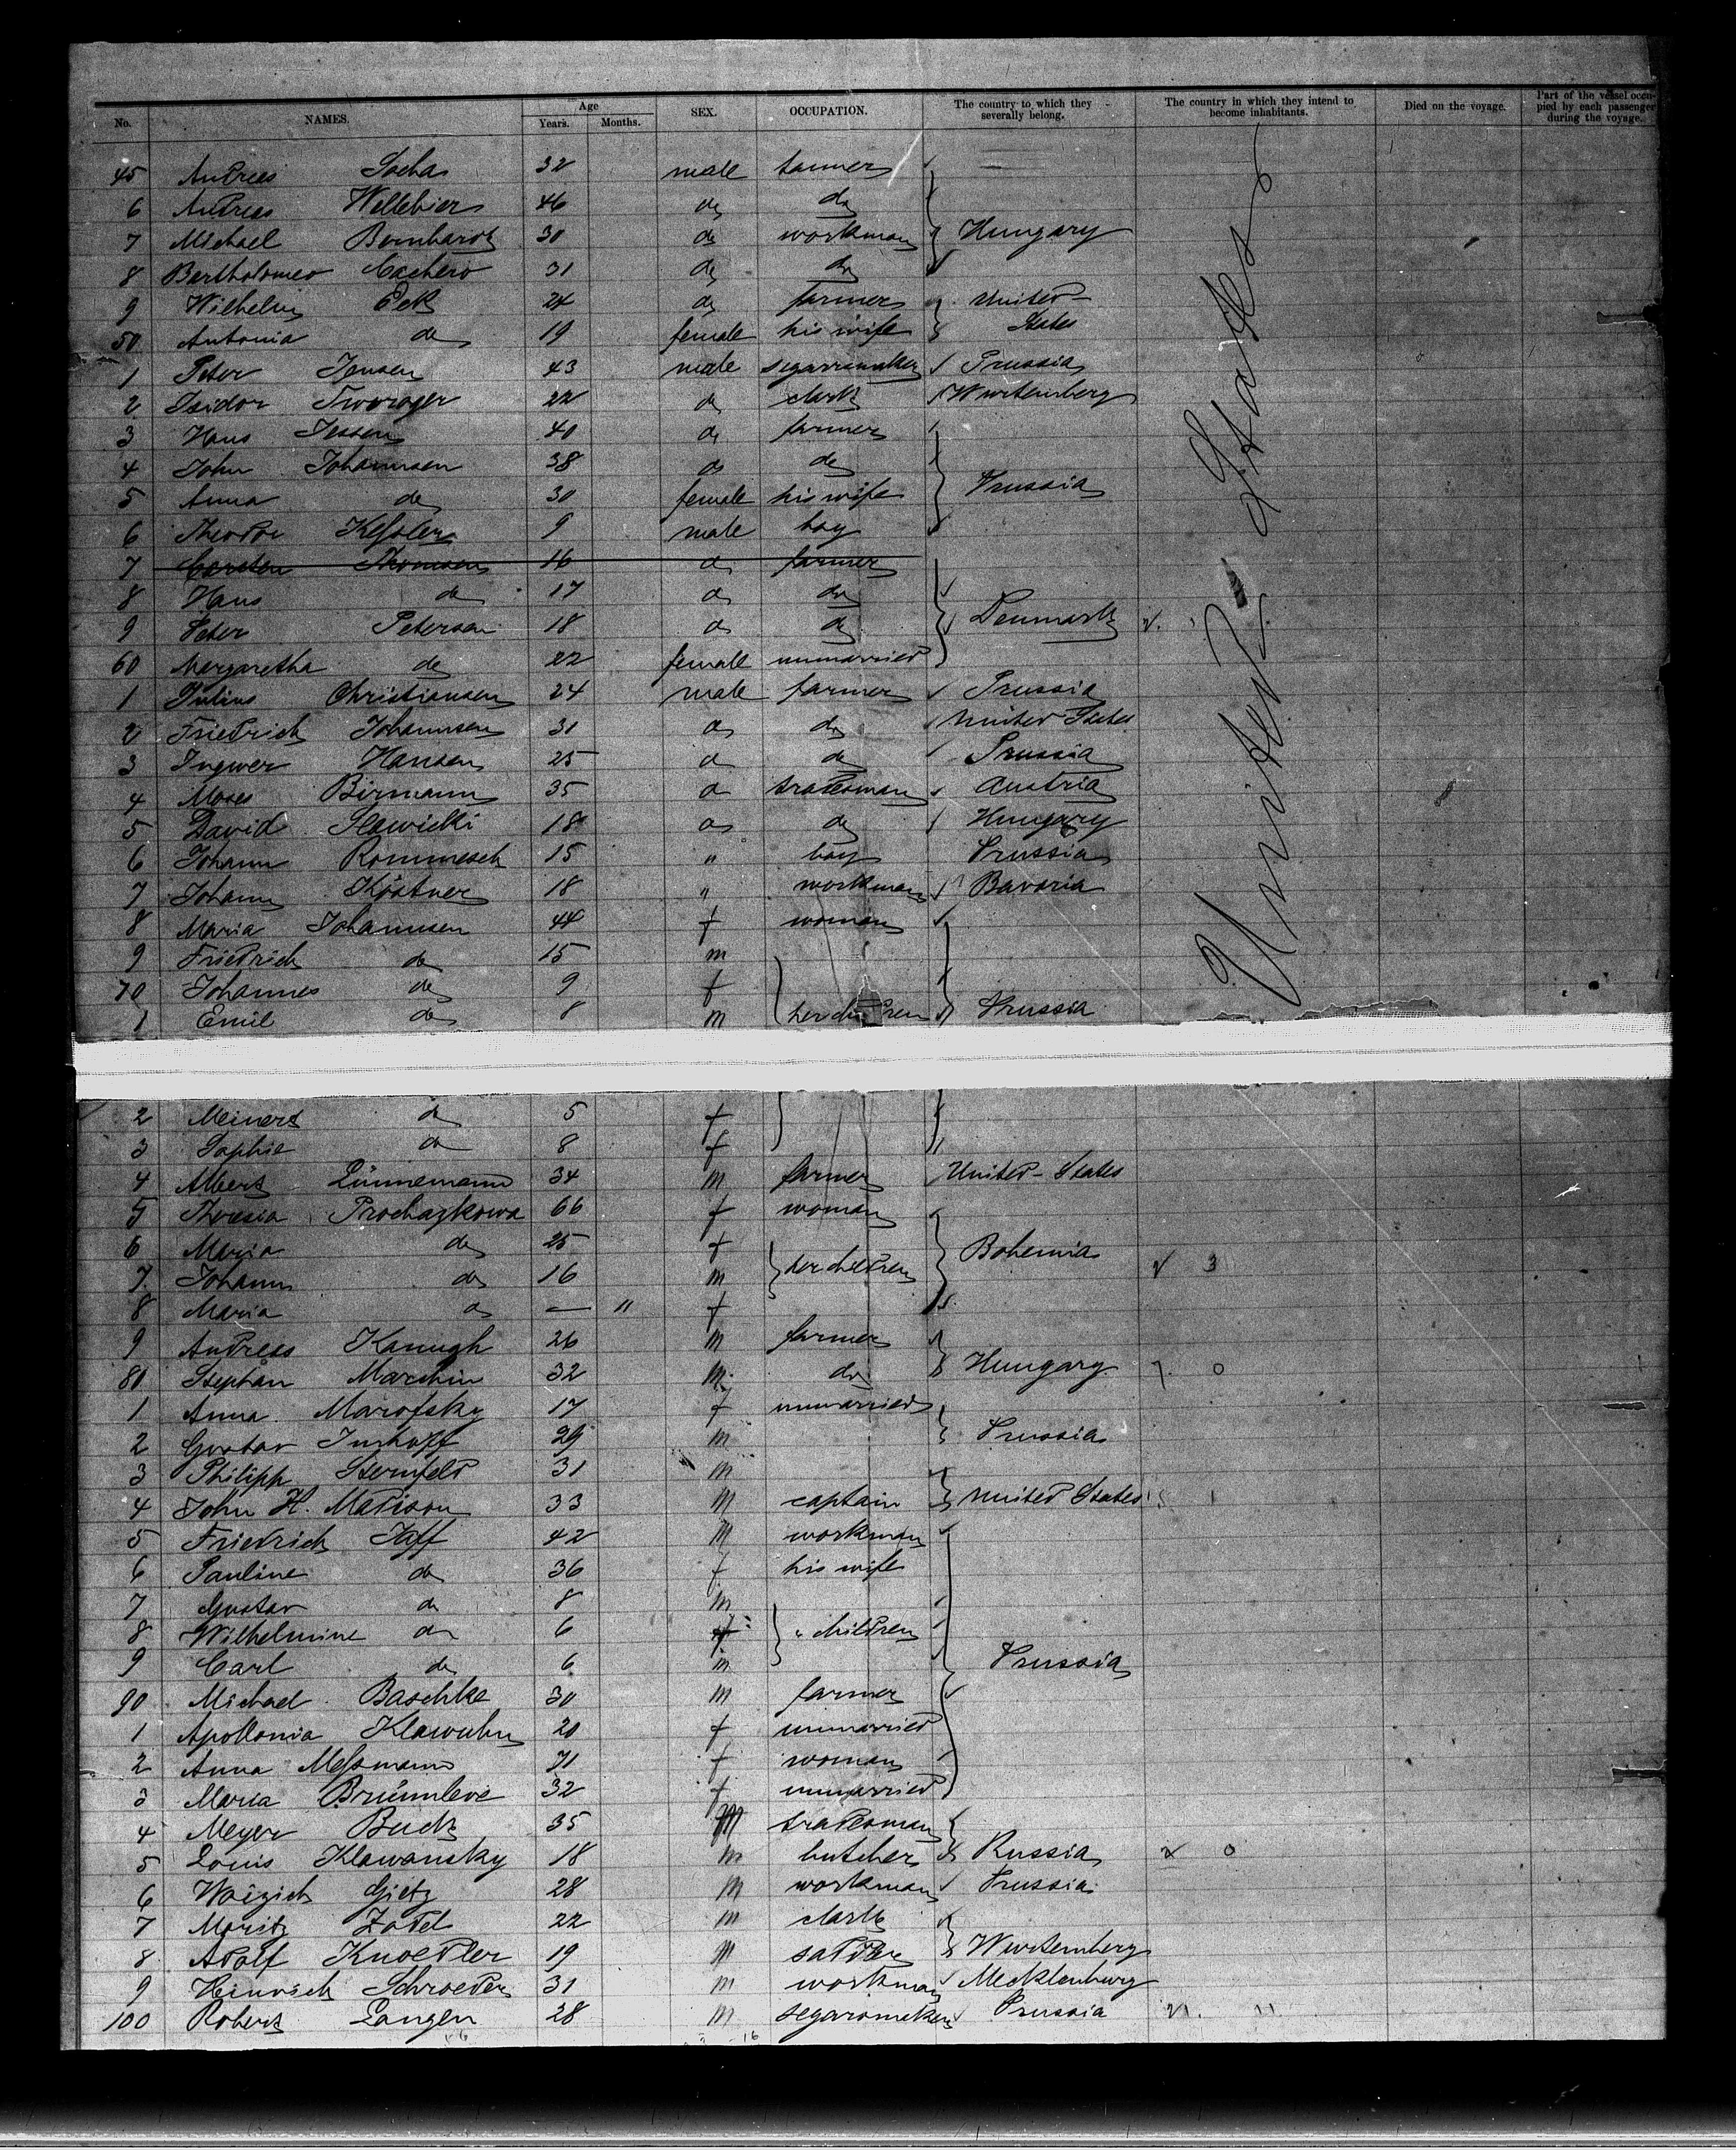 No. NAMES. Age Years. Months. SEX. OCCUPATION. The country to which they severally belong. The country in which they intend to become inhabitants. Died on the voyage. Part of the vessel occupied by each passenger during the voyage.
45 Andreas Socha 32 male farmer
6 Andreas 46 do do
7 Michael Bernhardt 30 do workman Hungary
8 Bartholomeo 31 do do
9 Wilhelm Eck 24 do farmer United
50 Antonia do 19 female his wife States
1 Peter Jensen 43 male segarrmaker Prussia
2 Isidor 22 do clark Wurtemberg
3 Hans Jessen 40 do farmer
4 John Johannsen 38 do do
5 Anna do 30 female his wife Prussia
6 Theodor Kessler 9 male boy
7 Carsten Thomsen 16 do farmer
8 Hans do 17 do do
9 Peter Petersen 18 do do Denmark
60 Margaretha do 22 female unmarried
1 Julius Christiansen 24 male farmer Prussia
2 Friedrich Johannsen 31 do do United States
3 Ingwer Hansen 25 do do Prussia
4 Moses Birmann 35 do tradesman Austria
5 David Slawicki 18 do do Hungary
6 Johann Rommesch 15 " boy Prussia
7 Johann Köstner 18 " workman Bavaria
8 Maria Johannsen 44 f woman
9 Friedrich do 15 m
70 Johannes do 9 f
1 Emil do 8 m her children Prussia
United States
2 Meinert do 5 f
3 Sophie do 8 f
4 Albert Lünnemann 34 m farmer United-States
5 Theresia Prochazkowa 66 f woman
6 Maria do 25 f Bohemia
7 Johann do 16 m her children 3
8 Maria do — " f
9 Andreas Kanugh 26 m farmer
80 Stephan Marchin 32 m do Hungary 0
1 Anna Marofsky 17 f unmarried
2 Gustav Imhoff 29 m Prussia
3 Philipp Sternfeld 31 m
4 John H. Madison 33 m captain United States
5 Friedrich Jaff 42 m workman
6 Pauline do 36 f his wife
7 Gustav do 8 m
8 Wilhelmine do 6 f " children
9 Carl do 6 m Prussia
90 Michael Baschke 30 m farmer
1 Apollonia Klawuhn 20 f unmarried
2 Anna Messmann 71 f woman
3 Maria 32 f unmarried
4 Meyer Buck 35 m tradesman
5 Louis Klawansky 18 m butcher Russia 0
6 Woizich Gietz 28 m workman Prussia
7 Moritz Zadel 22 m clark
8 Adolf Knoedler 19 m sadler Wurtemberg
9 Heinrich Schroeder 31 m workman Mecklenburg
100 Robert Langen 28 m segaromaker Prussia